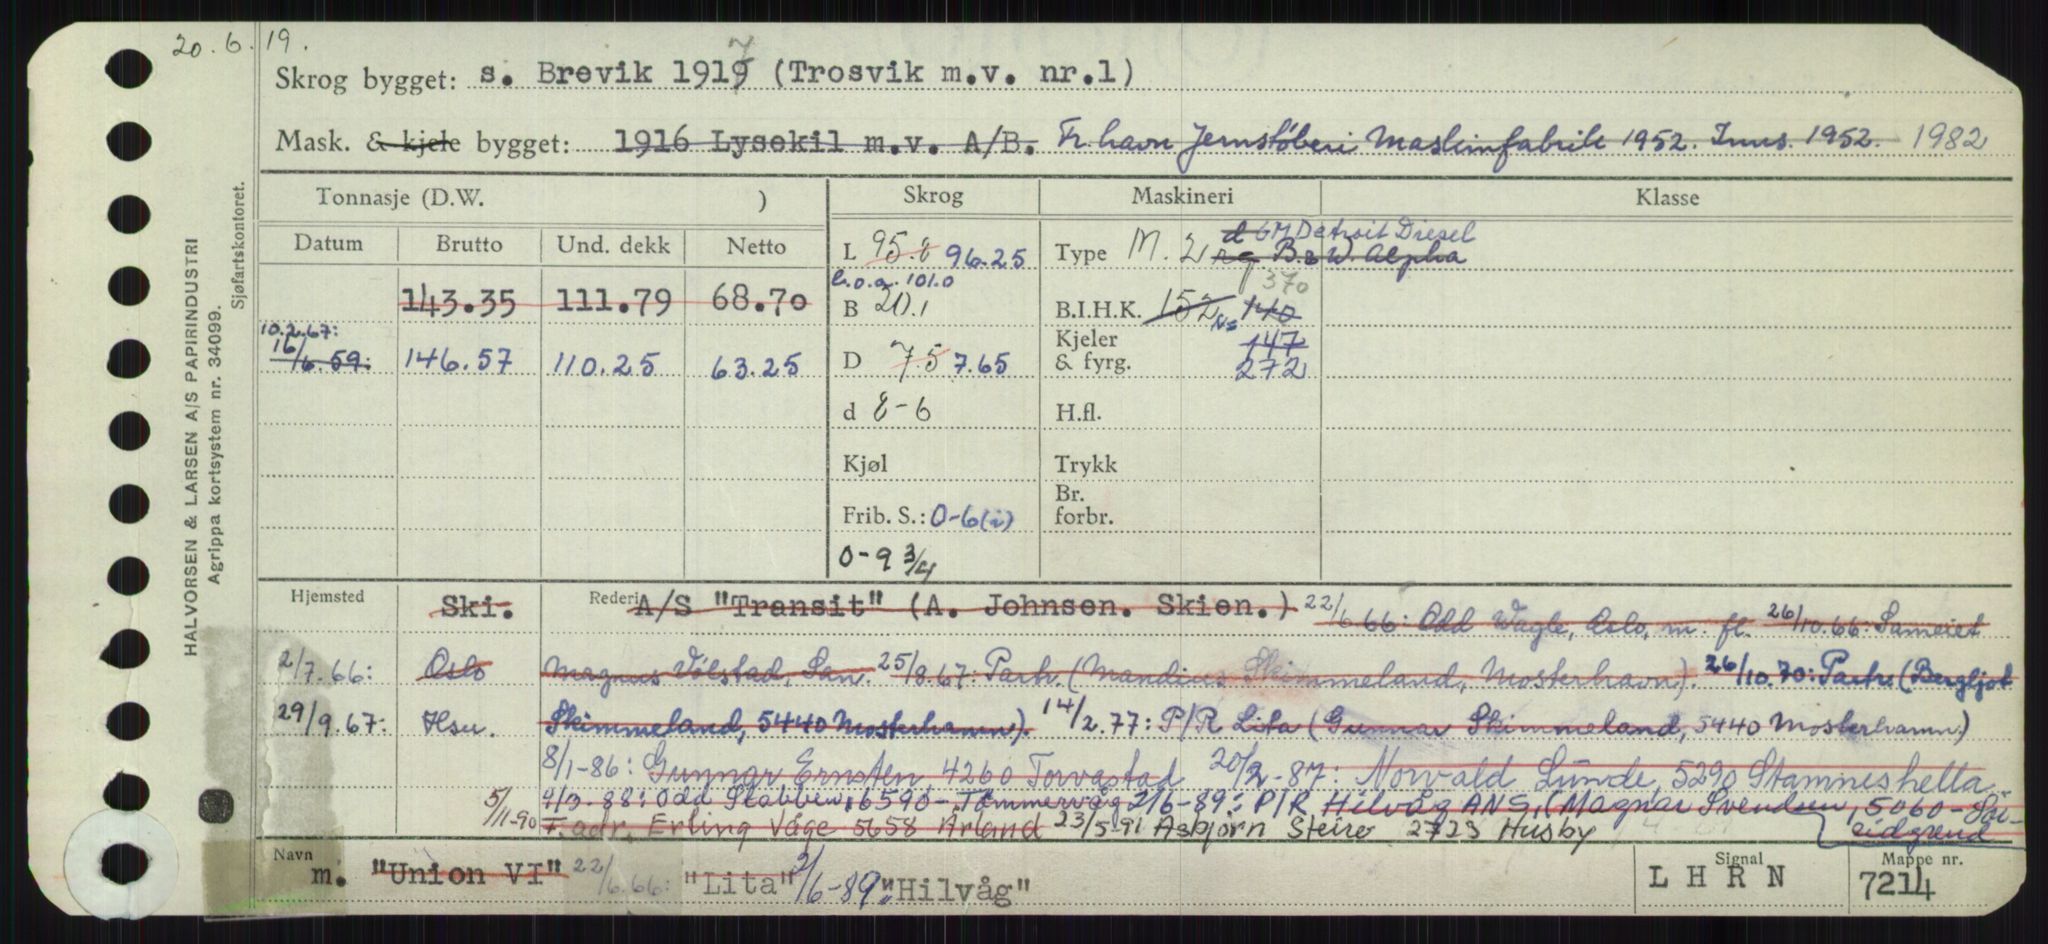 20.6.19.
7
Skrog bygget: s. Brevik 1919 (Trosvik m.v. nr.1)
Mask. & kjele bygget: 1916 Lysekil m.v. A/B. Fr.havn Jernstøberi Maskinfabrik 1952. Inns. 1952. 1982
Tonnasje (D.W. ) Skrog Maskineri Klasse
Datum Brutto Und. dekk Netto
L 95.8 96.25
Type M. 2 rg B&W. Alpha
d GM Detroit Diesel
l.o.a. 101.0
143.35 111.79 68.70
B 20.1
370
B.I.H.K. 152 No 140
10.2.67:
16/6.59: 146.57 110.25 63.25
D 7.5 7.65
Kjeler 147
& fyrg. 272
d 8-6
H.fl.
Kjøl
Trykk
Br.
forbr.
Frib. S.: 0-6(i)
0-9 3/4
Hjemsted Ski. Rederi A/S "Transit" (A. Johnsen. Skien.) 22/6 66: Odd Vagle, Oslo, m. fl. 26/10.66: Sameiet
2/7.66: Oslo Magnus Vølstad, San. 25/8.67: Partr. (Mandius Skimmeland, Mosterhavn). 26/10.70: Partr. (Bergljot
29/9.67: Hsu. Skimmeland, 5440 Mosterhamn). 14/2.77: P/R Lita (Gunnar Skimmeland, 5440 Mosterhamn)
8/1-86: Gunnar Ernsten, 4260 Torvastad 20/2-87: Norvald Lunde, 5290 Stamneshella
4/3-88: Odd Stabben, 6590 - Tømmervåg 2/6-89: P/R Hilvåg ANS, (Magnar Svendsen, 5060 - Sø-
reidgrend
5/11-90 F. adr. Erling Våge 5658 Årland 23/5-91 Asbjørn Steiro 2723 Husby
Navn m. "Union VI" 22/6.66: "Lita" 2/6-89: "Hilvåg"
Signal
L H R N
Mappe nr.
7214
HALVORSEN & LARSEN A/S PAPIRINDUSTRI
Agrippa kortsystem nr. 34099.
Sjøfartskontoret.